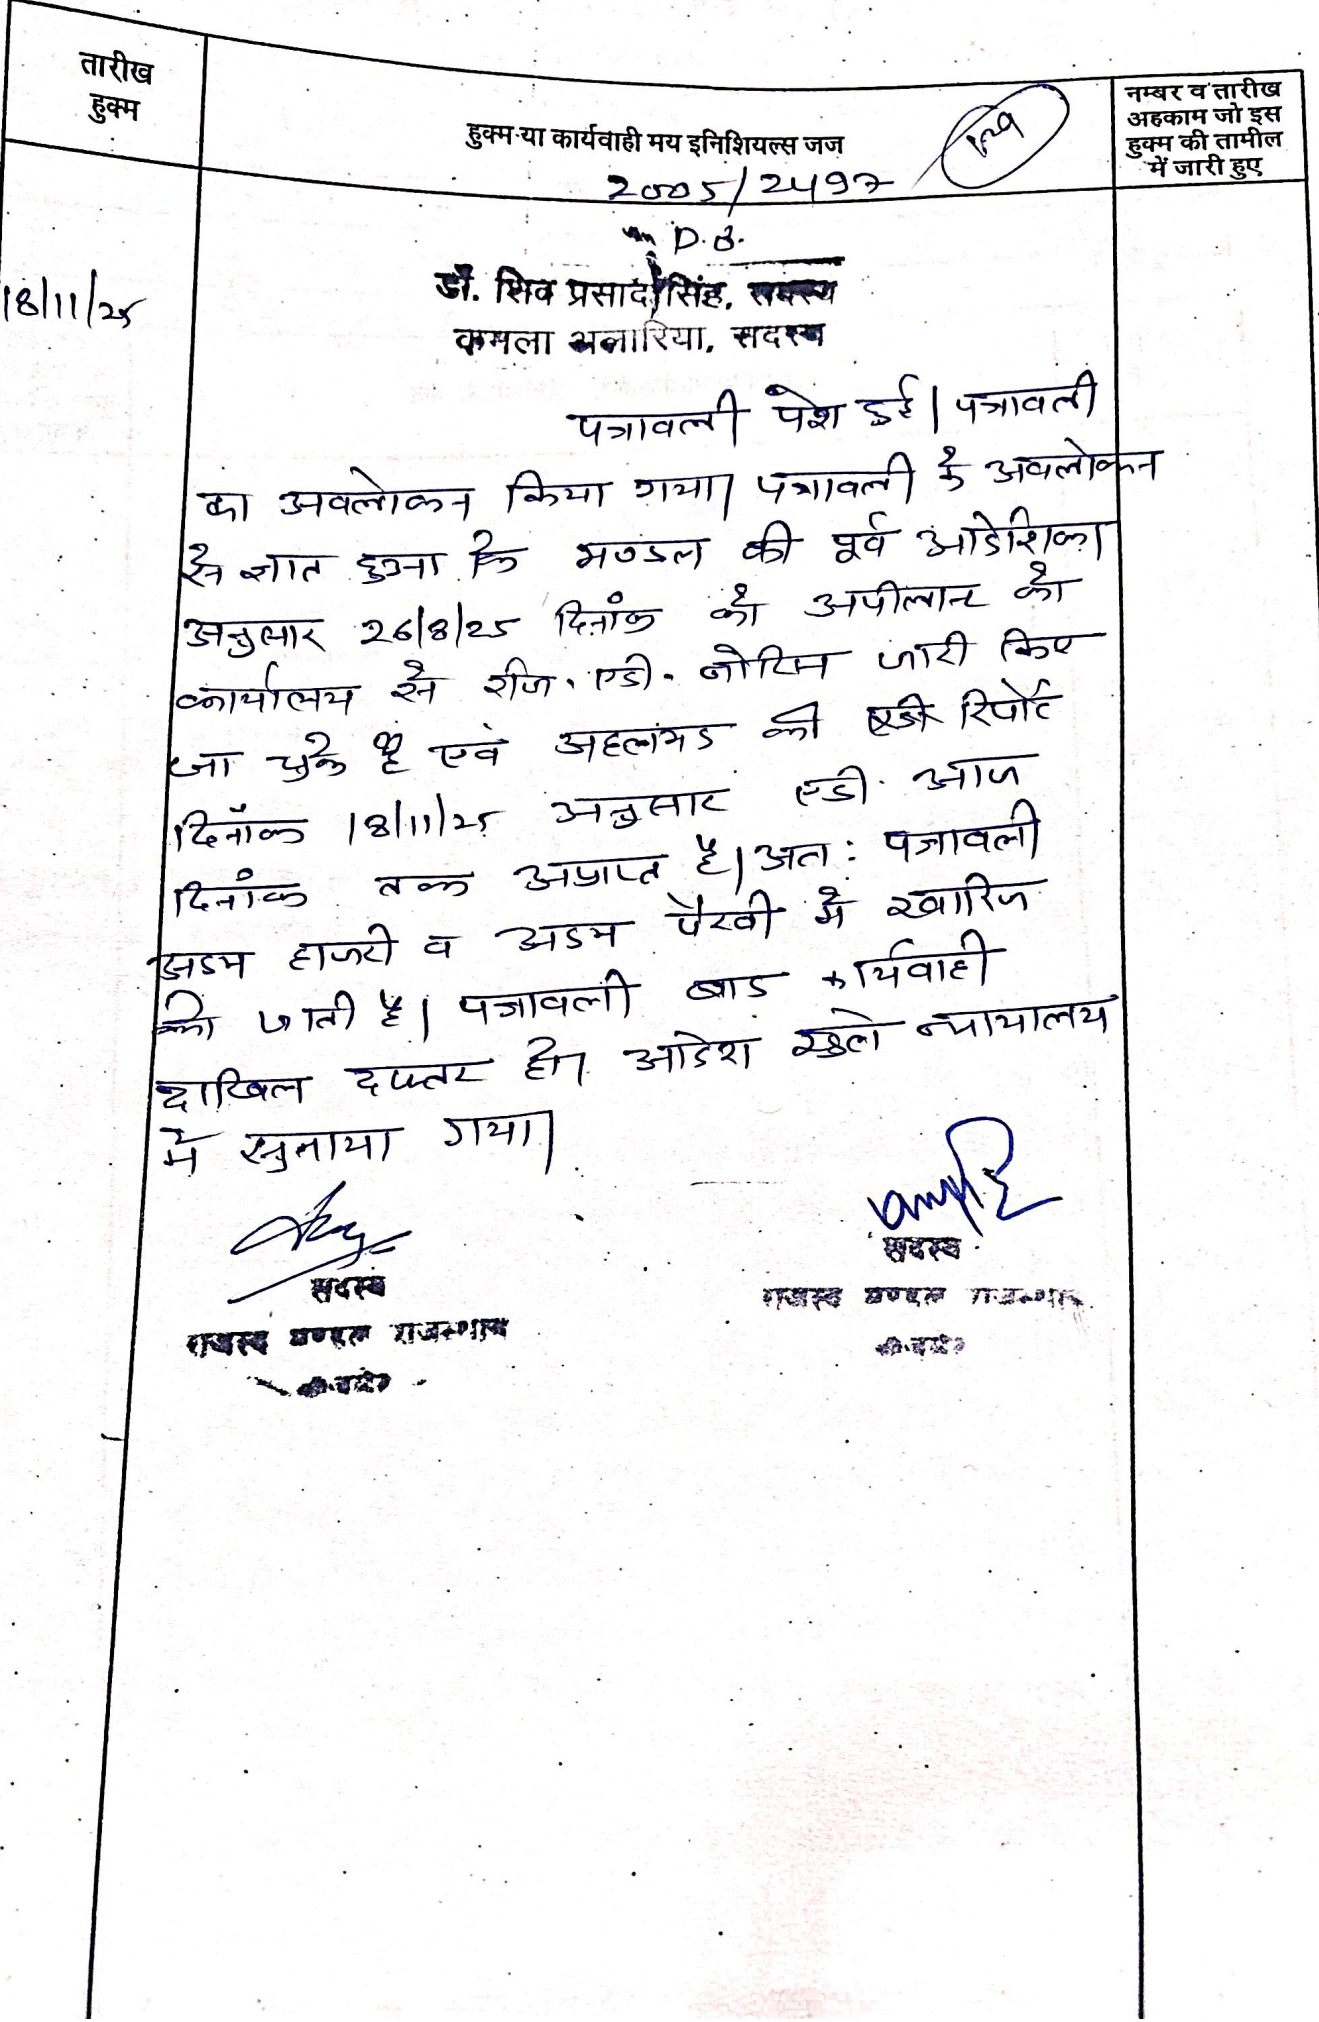 तारीख
हुक्म
हुक्म या कार्यवाही मय इनिशियल्स जज
नम्बर व तारीख
अहकाम जो इस
हुक्म की तामील
में जारी हुए
2005/2497
D.B.
18/11/25
डॉ. शिव प्रसाद सिंह, सदस्य
कमला अलारिया, सदस्य
पत्रावली पेश हुई। पत्रावली
का अवलोकन किया गया। पत्रावली के अवलोकन
से ज्ञात हुआ कि मण्डल की पूर्व आदेशिका
अनुसार 26/8/25 दिनांक को अपीलान्ट को
कार्यालय से रजि. एडी. नोटिस जारी किए
जा चुके है एवं अहलमद की रिपोर्ट
दिनाँक 18/11/25 अनुसार एडी. आज
दिनांक तक अप्राप्त है। अतः पत्रावली
अदम हाजरी व अदम पैरवी में खारिज
की जाती है। पत्रावली बाद कार्यवाही
दाखिल दफ्तर हो। आदेश खुले न्यायालय
में सुनाया गया।
सदस्य
राजस्व मण्डल राजस्थान
सदस्य
राजस्व मण्डल राजस्थान